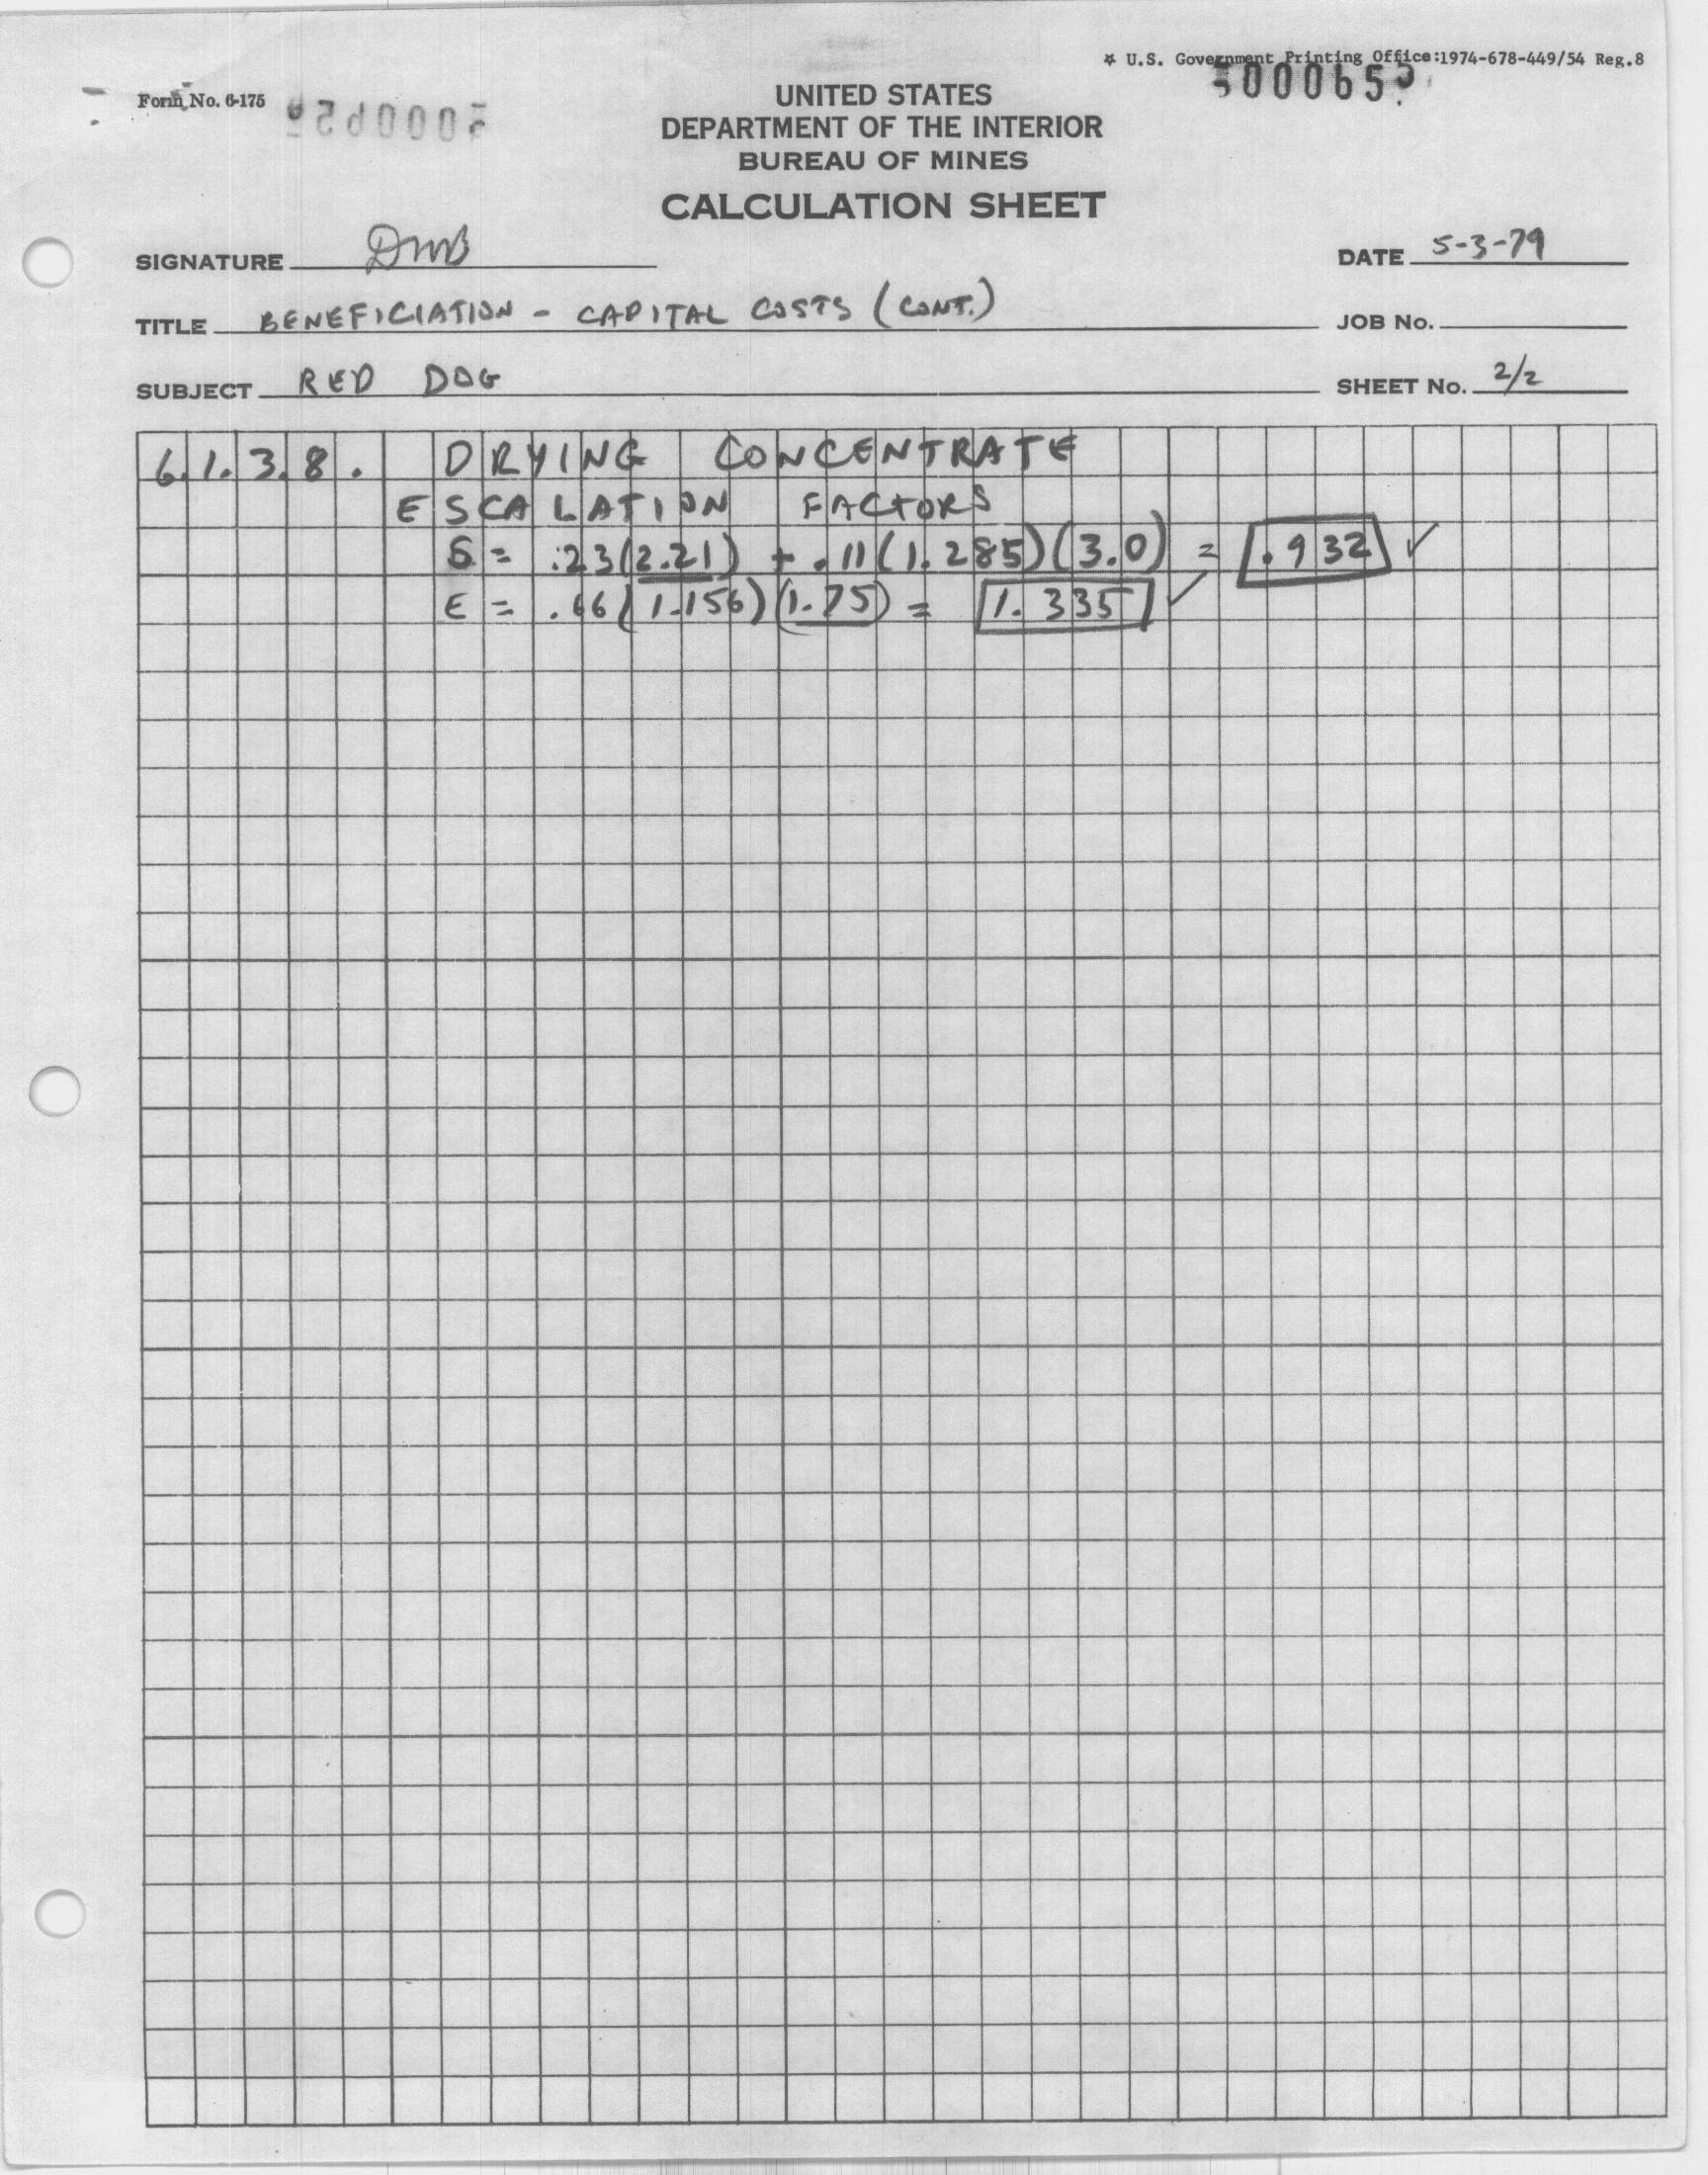 * U.S. Government Printing Office:1974-678-449/54 Reg.8
Form No. 6-175
UNITED STATES
DEPARTMENT OF THE INTERIOR
BUREAU OF MINES
CALCULATION SHEET
SIGNATURE DWB
DATE 5-3-79
TITLE BENEFICIATION - CAPITAL COSTS (CONT.)
JOB No.
SUBJECT RED DOG
SHEET No. 2/2
6.1.3.8. DRYING CONCENTRATE
ESCALATION FACTORS
S = .23(2.21) + .11(1.285)(3.0) = .932 ✓
E = .66(1.156)(1.75) = 1.335 ✓